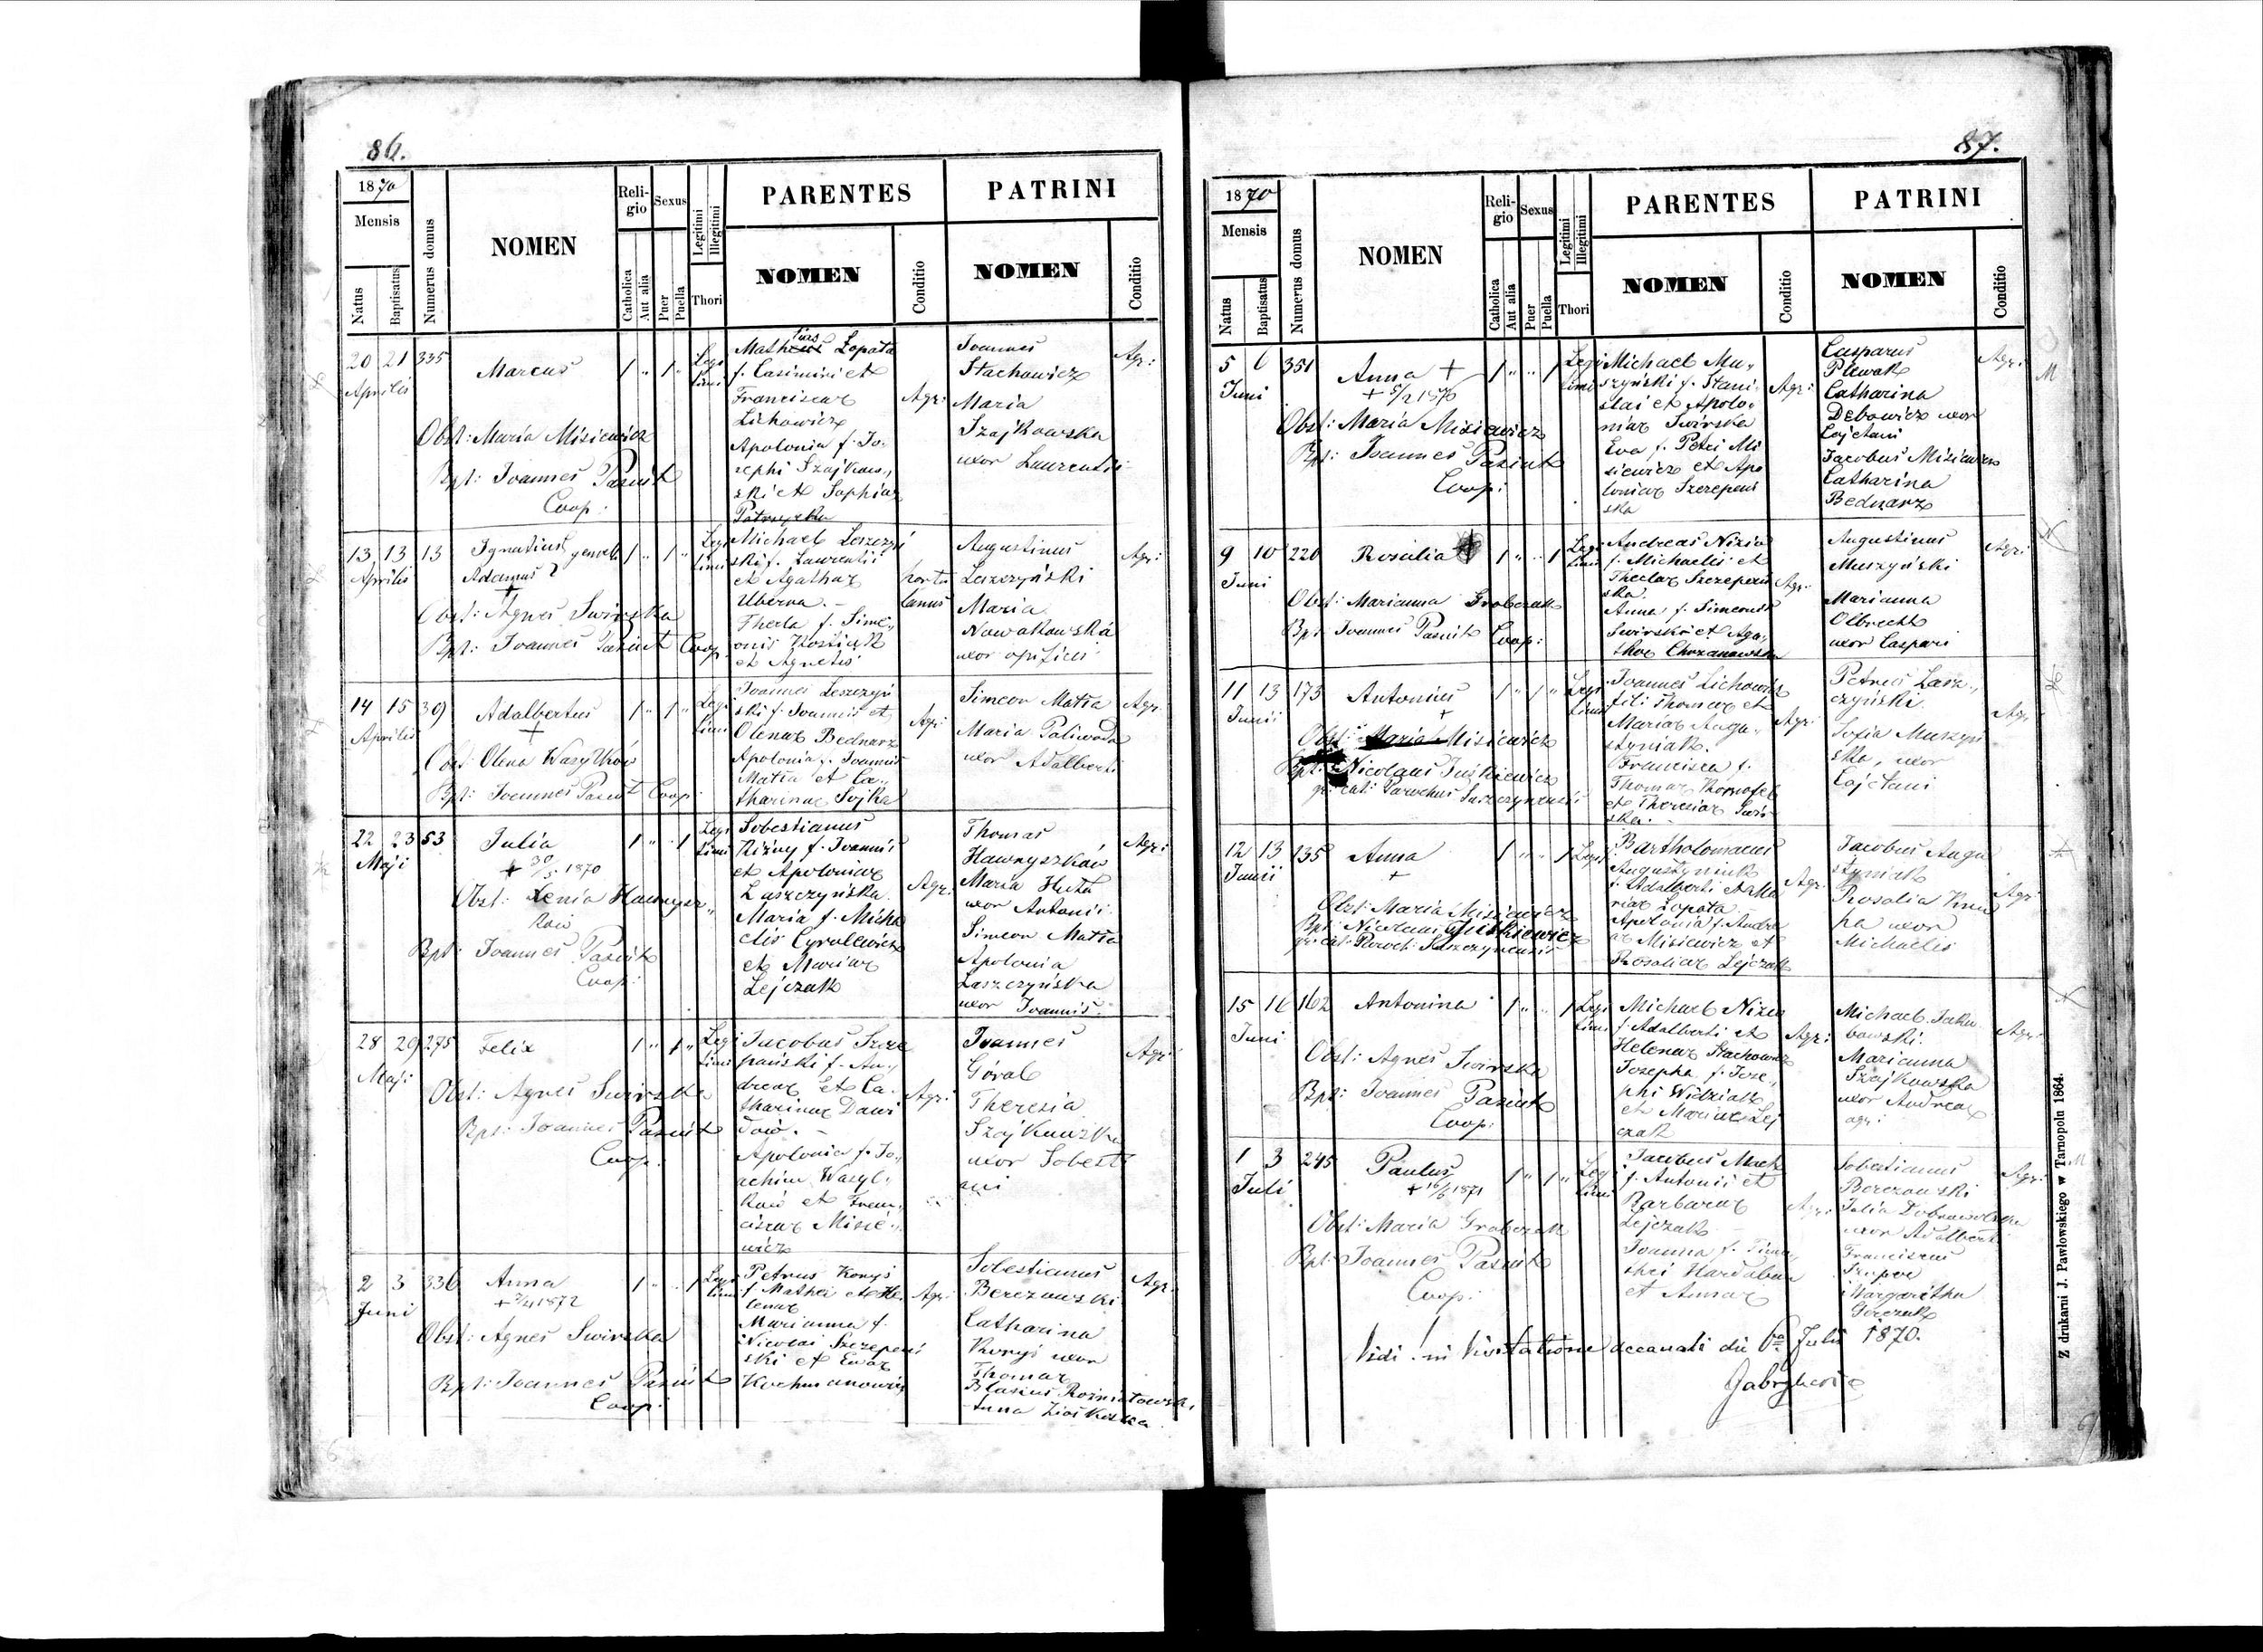 86.
1870
Mensis
Natus
Baptisatus
Numerus domus
NOMEN
Reli-
gio
Catholica
Aut alia
Sexus
Puer
Puella
Legitimi
Illegitimi
Thori
PARENTES
NOMEN
Conditio
PATRINI
NOMEN
Conditio
20 21 335
Aprilis
Marcus
1 " 1 "
Legi
timi
Obst: Maria Misiewicz
Bpt: Joannes Pasiut
Coop:
Mathias Łopata
f. Casimiri et
Franciscae
Lichowicz
Apolonia f. Jo-
sephi Szajkow-
ski et Sophiae
Agr:
Joannes
Stachowicz
Maria
Szajkowska
uxor Laurentii
Agr:
13 13 13
Aprilis
Ignatius
Adamus
gemelli
1 " 1 "
Legi
timi
Obst: Agnes Swirska
Bpt: Joannes Pasiut Coop:
Michael Leszczyń
ski f. Laurentii
et Agathae
Uberna. -
Thecla f. Sime-
onis Kostiuk
et Agnetis
horto
lanus
Augustinus
Leszczyński
Maria
Nowakowska
uxor opificis
Agr:
14 15 39
Aprilis
Adalbertus
+
1 " 1 "
Legi
timi
Obst: Olena Wasylków
Bpt: Joannes Pasiut Coop:
Joannes Leszczyń
ski f. Joannis et
Olenae Bednarz
Apolonia f. Joannis
Matła et Ca-
tharinae Sojka
Agr:
Simeon Matła
Maria Paliwoda
uxor Adalberti
Agr:
22 23 53
Maji
Julia
+ 30/5 1870
1 " " 1
Legi
timi
Obst: Xenia Hawrysz-
ków
Bpt: Joannes Pasiut
Coop:
Sobestianus
Riżny f. Joannis
et Apoloniae
Laszczyńska
Maria f. Micha
elis Cyrulewicz
et Mariae
Lejczak
Agr:
Thomas
Hawryszków
Maria Huta
uxor Antonii
Simeon Matła
Apolonia
Laszczyńska
uxor Joannis
Agr:
28 29 275
Maji
Felix
1 " 1 "
Legi
timi
Obst: Agnes Swirska
Bpt: Joannes Pasiut
Coop:
Jacobus Szcze
pański f. An-
dreae et Ca-
tharinae Dawi
dów. -
Apolonia f. Jo-
achim Wasyl-
ków et Fran-
ciscae Misie-
wicz
Agr:
Joannes
Góral
Theresia
Szajkowska
uxor Sobesti
ani
Agr:
2 3 336
Juni
Anna
1 " " 1
Legi
timi
Obst: Agnes Swirska
Bpt: Joannes Pasiut
Coop:
Petrus Konyś
f Mathei et He-
lenae
Marianna f.
Nicolai Szczepań
ski et Evae
Agr:
Sobestianus
Berezowski
Catharina
Konyś uxor
Thomae
Blasius Rożniatowski
Anna
Agr:
87.
1870
Mensis
Natus
Baptisatus
Numerus domus
NOMEN
Reli-
gio
Catholica
Aut alia
Sexus
Puer
Puella
Legitimi
Illegitimi
Thori
PARENTES
NOMEN
Conditio
PATRINI
NOMEN
Conditio
5 6 351
Juni
Anna +
1 " " 1
Legi
timi
Obst: Maria Misiewicz
Bpt: Joannes Pasiut
Coop:
Michael Mu-
szyński f. Stani-
slai et Apolo-
niae Swirska
Eva f. Petri Mi
siewicz et Apo
loniae Szczepań
ska
Agr:
Casparus
Plewak
Catharina
Debowicz uxor
Cajetani
Jacobus Misiewicz
Catharina
Bednarz
Agr:
M
9 10 220
Juni
Rosalia
1 " " 1
Legi
timi
Obst: Marianna Grabczak
Bpt: Joannes Pasiut Coop:
Andreas Nizio
f. Michaelis et
Theclae Szczepań
ska.
Anna f. Simeonis
Swirski et Aga-
thae Chrzanowska
Agr:
Augustinus
Muszyński
Marianna
Olbrecht
uxor Caspari
Agr:
11 13 173
Junii
Antonius
+
1 " 1 "
Legi
timi
Obst: Maria Misiewicz
Bpt: Nicolaus Juśkiewicz
gr: cat: Parochus Suszczynensis
Joannes Lichowicz
fili Thomae et
Mariae Augu-
styniak.
Francisca f.
Thomae Kornafel
et Theresiae Swir-
ska. -
Agr:
Petrus Lasz-
czyński
Sofia Muszyń
ska, uxor
Cajetani
Agr:
12 13 135
Junii
Anna
+
1 " " 1
Legi
Obst: Maria Misiewicz
Bpt: Nicolaus Juśkiewicz
gr: cat: Paroch: Suszczynensis
Bartholomaeus
Augustyniak
f. Adalberti et Ma
riae Łopata
Apolonia f. Andre
ae Misiewicz et
Rosaliae Lejczak
Agr:
Jacobus Augu
styniak
Rosalia
uxor
Michaelis
Agr:
15 16 162
Juni
Antonina
1 " " 1
Legi
timi
Obst: Agnes Swirska
Bpt: Joannes Pasiut
Coop:
Michael Nizio
f. Adalberti et
Helenae Stachowicz
Josepha f. Jose-
phi Widziak
et Mariae Lej
czak
Agr:
Michael Jaku
bowski.
Marianna
Szajkowska
uxor Andreae
agr:
Agr:
1 3 245
Juli
Paulus
+ 16/6 1871
1 " 1 "
Legi
timi
Obst: Maria Grabczak
Bpt: Joannes Pasiut
Coop:
Jacobus Mack
f. Antonii et
Barbarae
Lejczak
Joanna f. Timo
thei Hardaban
et Annae
Agr:
Sobestianus
Berezowski
Julia Dobrowolska
uxor Adalberti
Franciscus
Margaretha
Agr:
M
Vidi in Visitatione decanali die 6ta Julii 1870.
Z drukarni J. Pawłowskiego w Tarnopolu 1864.